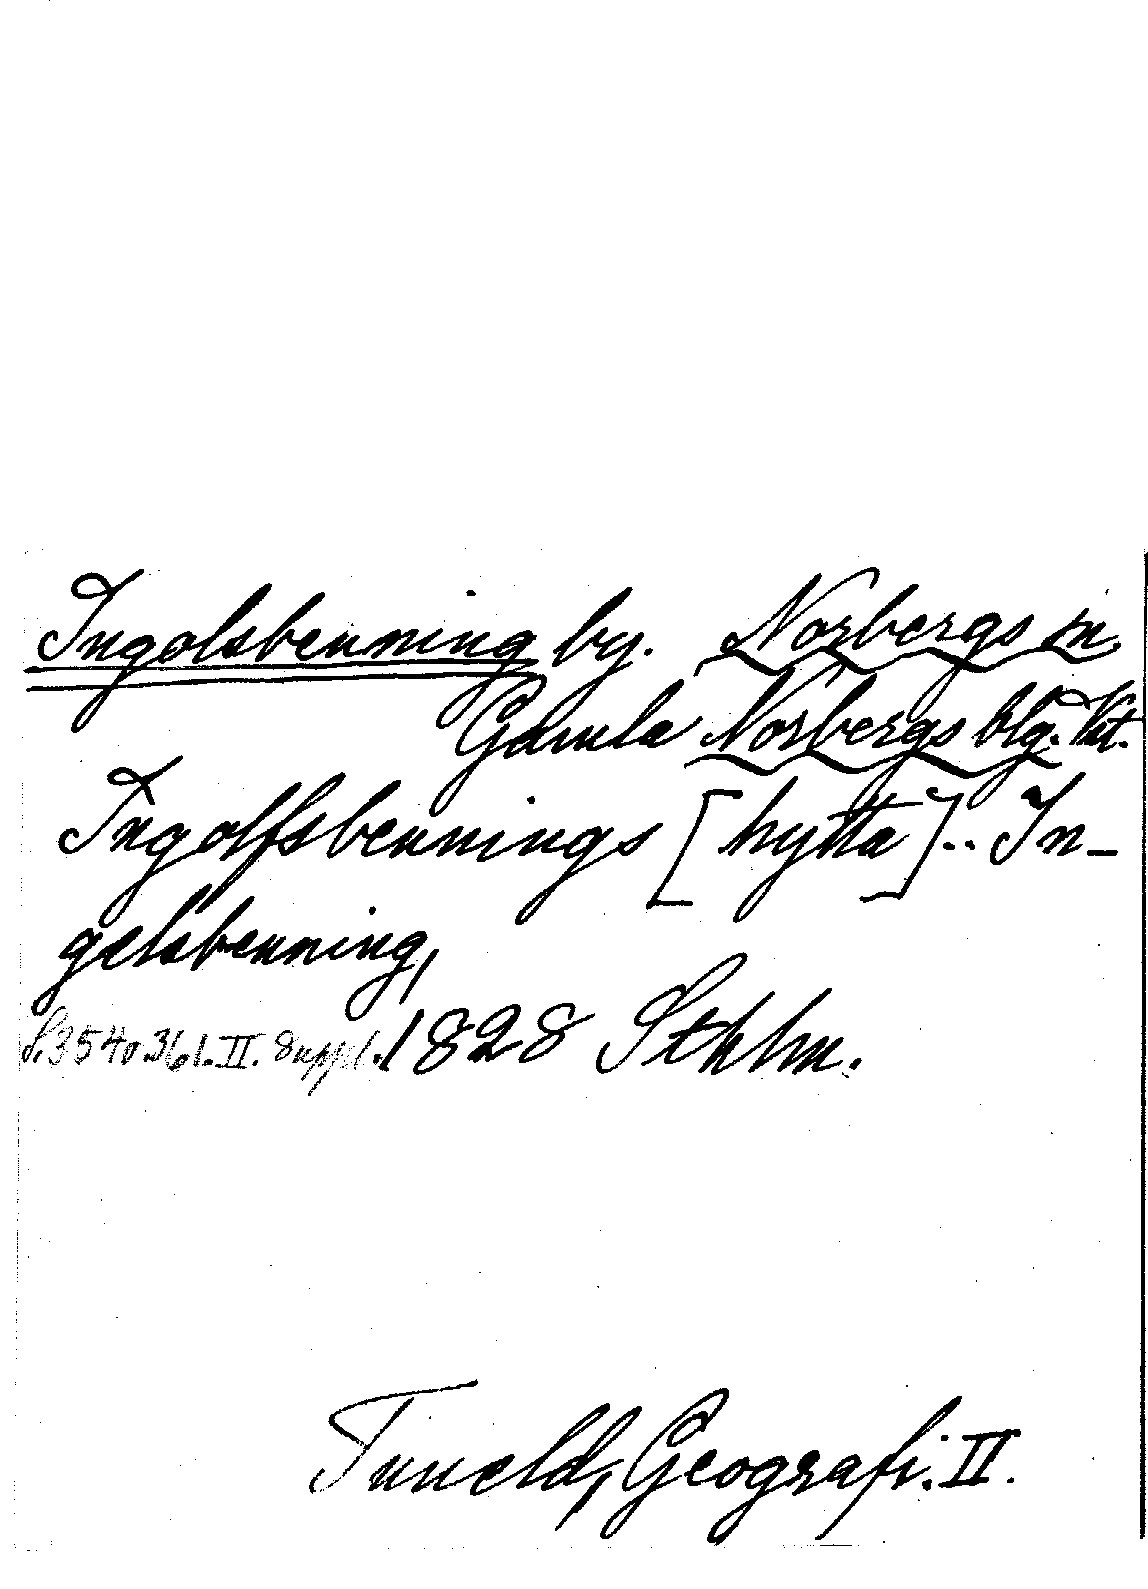 Ingolsbenning by. Norbergs sn
Gamla Norbergs blg. Vst.
Ingolfsbennings [hytta].. In-
gelsbenning,
S. 354 o. 361. II. Suppl. 1828 Sthlm.
Tuneld, Geografi. II.